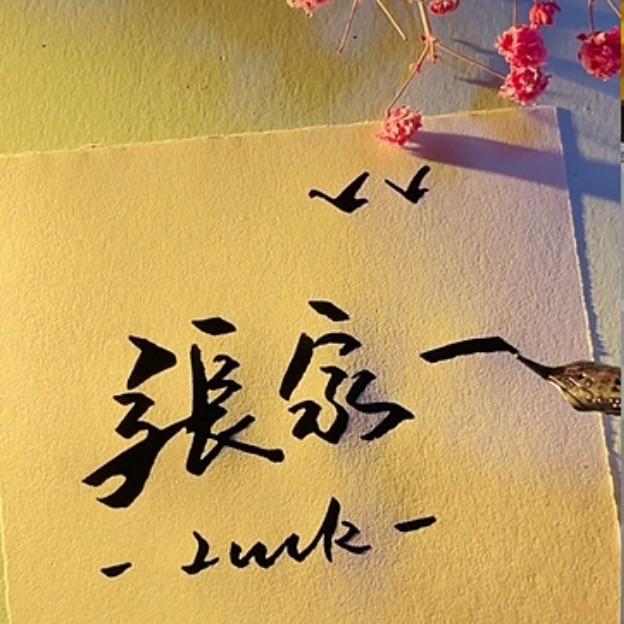 張家一
- luck -